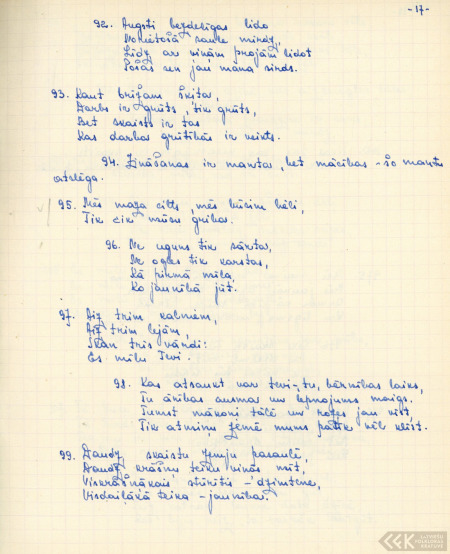 -17-
92. Augsti bezdelīgas lido
Norietošā saule mirdz,
Līdz ar viņām projām lidot
Posās sen jau mana sirds.
93. Kaut brīžam šķita,
Darbs ir grūts, tik grūts,
Bet skaists ir tas
Kas darba grūtībās ir veikts.
94. Zināšanas ir manta, bet mācības - šo mantu
atslēga.
95. Mēs maza cilts, mēs būsim lieli,
Tik cik mūsu griba.
96. Ne uguns tik sārta,
Ne ogles tik karstas,
Kā pirmā mīla,
Ko jaunībā jūt.
97. Aiz trim kalniem,
Aiz trim lejām,
Skan trīs vārdi:
Es mīlu Tevi.
98. Kas atsaukt var tevi, tu, bērnības laiks,
Tu ārības ausma un lepnojums maigs.
Tumst mākoņi tālē un rozes jau vīst,
Tik atmiņu zemē mums patīk vēl klīst.
99. Daudz, skaistu zemju pasaulē,
Daudz krāšņu teiku viņās mīt,
Viskrāšņākais stūrītis - dzimtene,
Visdaiļākā teika - jaunība.
LATVIEŠU
FOLKLORAS
KRĀTUVE